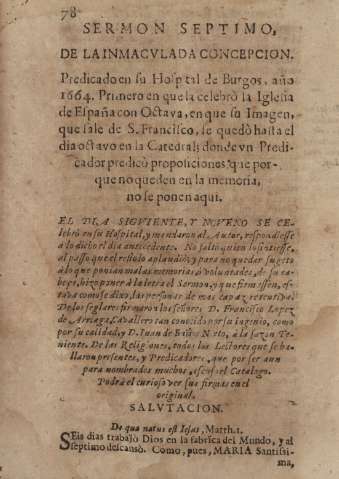 78
SERMON SEPTIMO,
DE LA INMACVLADA CONCEPCION.
Predicado en su Hospital de Burgos, año
1664. Primero en que la celebrò la Iglesia
de España con Octava, en que su Imagen,
que sale de S. Francisco, se quedò hasta el
dia octavo en la Catedral; donde vn Predi-
cador predicò proposiciones que por-
que no queden en la memoria,
no se ponen aqui.
EL DIA SIGVIENTE, Y NOVENO SE CE-
lebrò en su Hospital, y mandaron al Autor, respondiesse
a lo dicho el dia antecedente. No faltò quien lo sintiesse,
al passo que el resto lo aplaudiò; y para no quedar sugeto
a lo que ponian malas memorias, ò voluntades, de su ca-
beça, hizo poner à la letra el Sermon, y que firmassen, es-
tava como se dixo, las personas de mas capaz
De los seglares firmaron los señores D. Francisco Lopez
de Arriaga, Cavallero tan conocido por su ingenio, como
por su calidad, y D. Juan de Nieto, à la sazon Te-
niente. De las Religiones, todos los Lectores que se ha-
llaron presentes, y Predicadores, que por ser aun
para nombrados muchos, escuso el Catalogo.
Podrà el curioso ver sus firmas en el
original.
SALVTACION.
De qua natus est Iesus, Matth. 1.
SEis dias trabajò Dios en la fabrica del Mundo, y al
septimo descansò. Como, pues, MARIA Santissi-
ma,